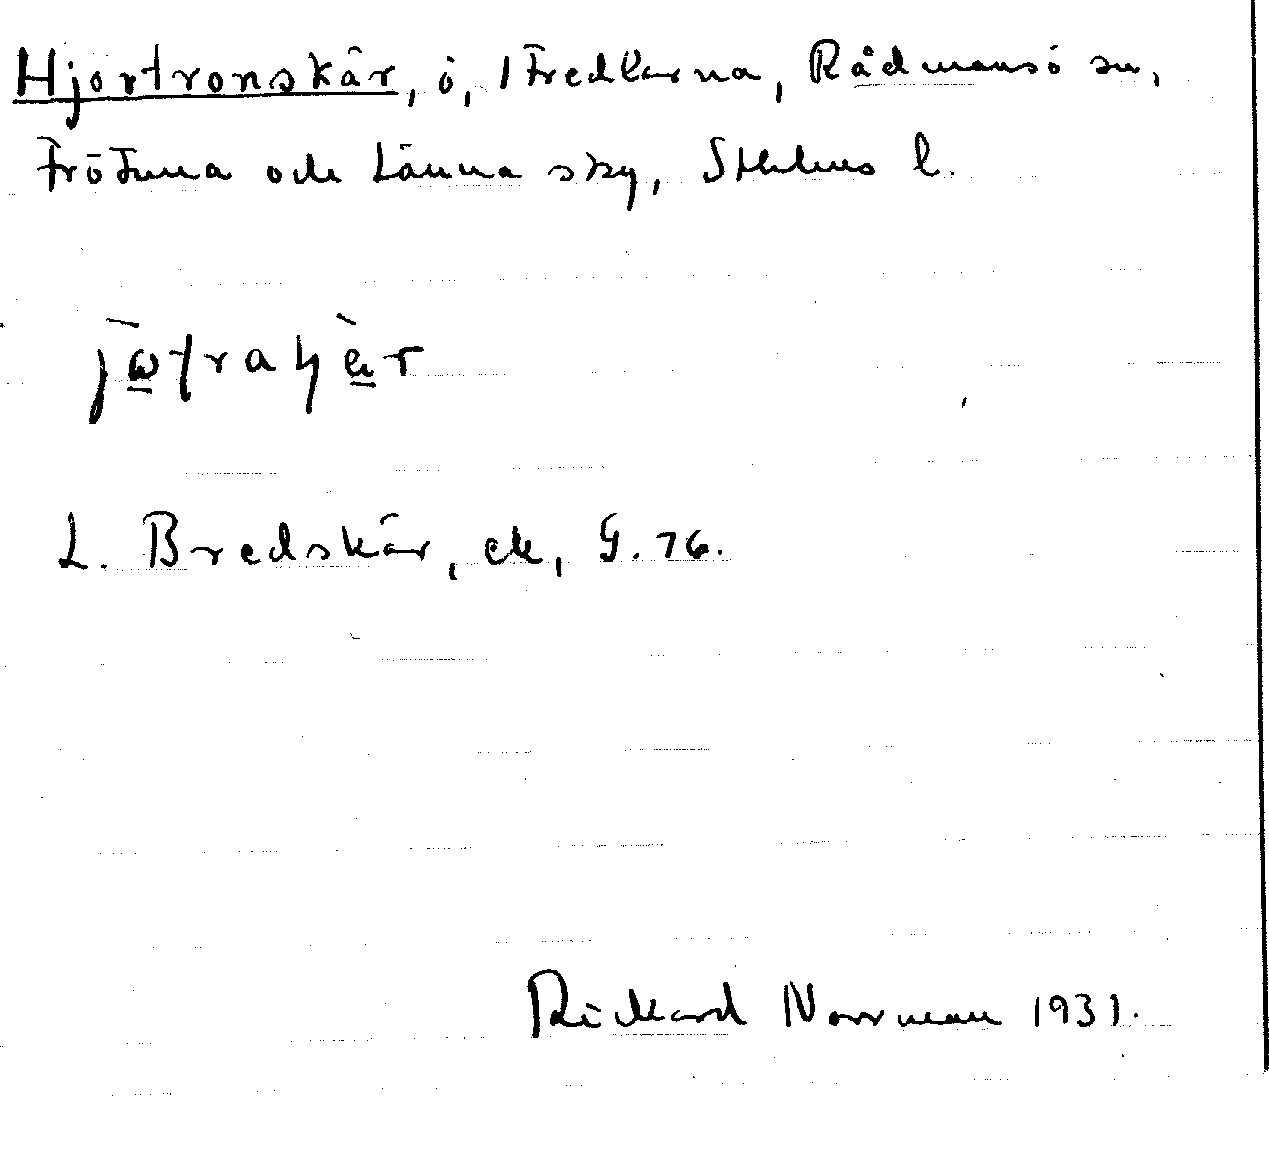 Hjortronskär, ö, i Fredlarna, Rådmansö sn,
Frötuna och Länna sky, Sthlms l.
L. Bredskär, ek, G. 76.
Rickard Norrman 1931.